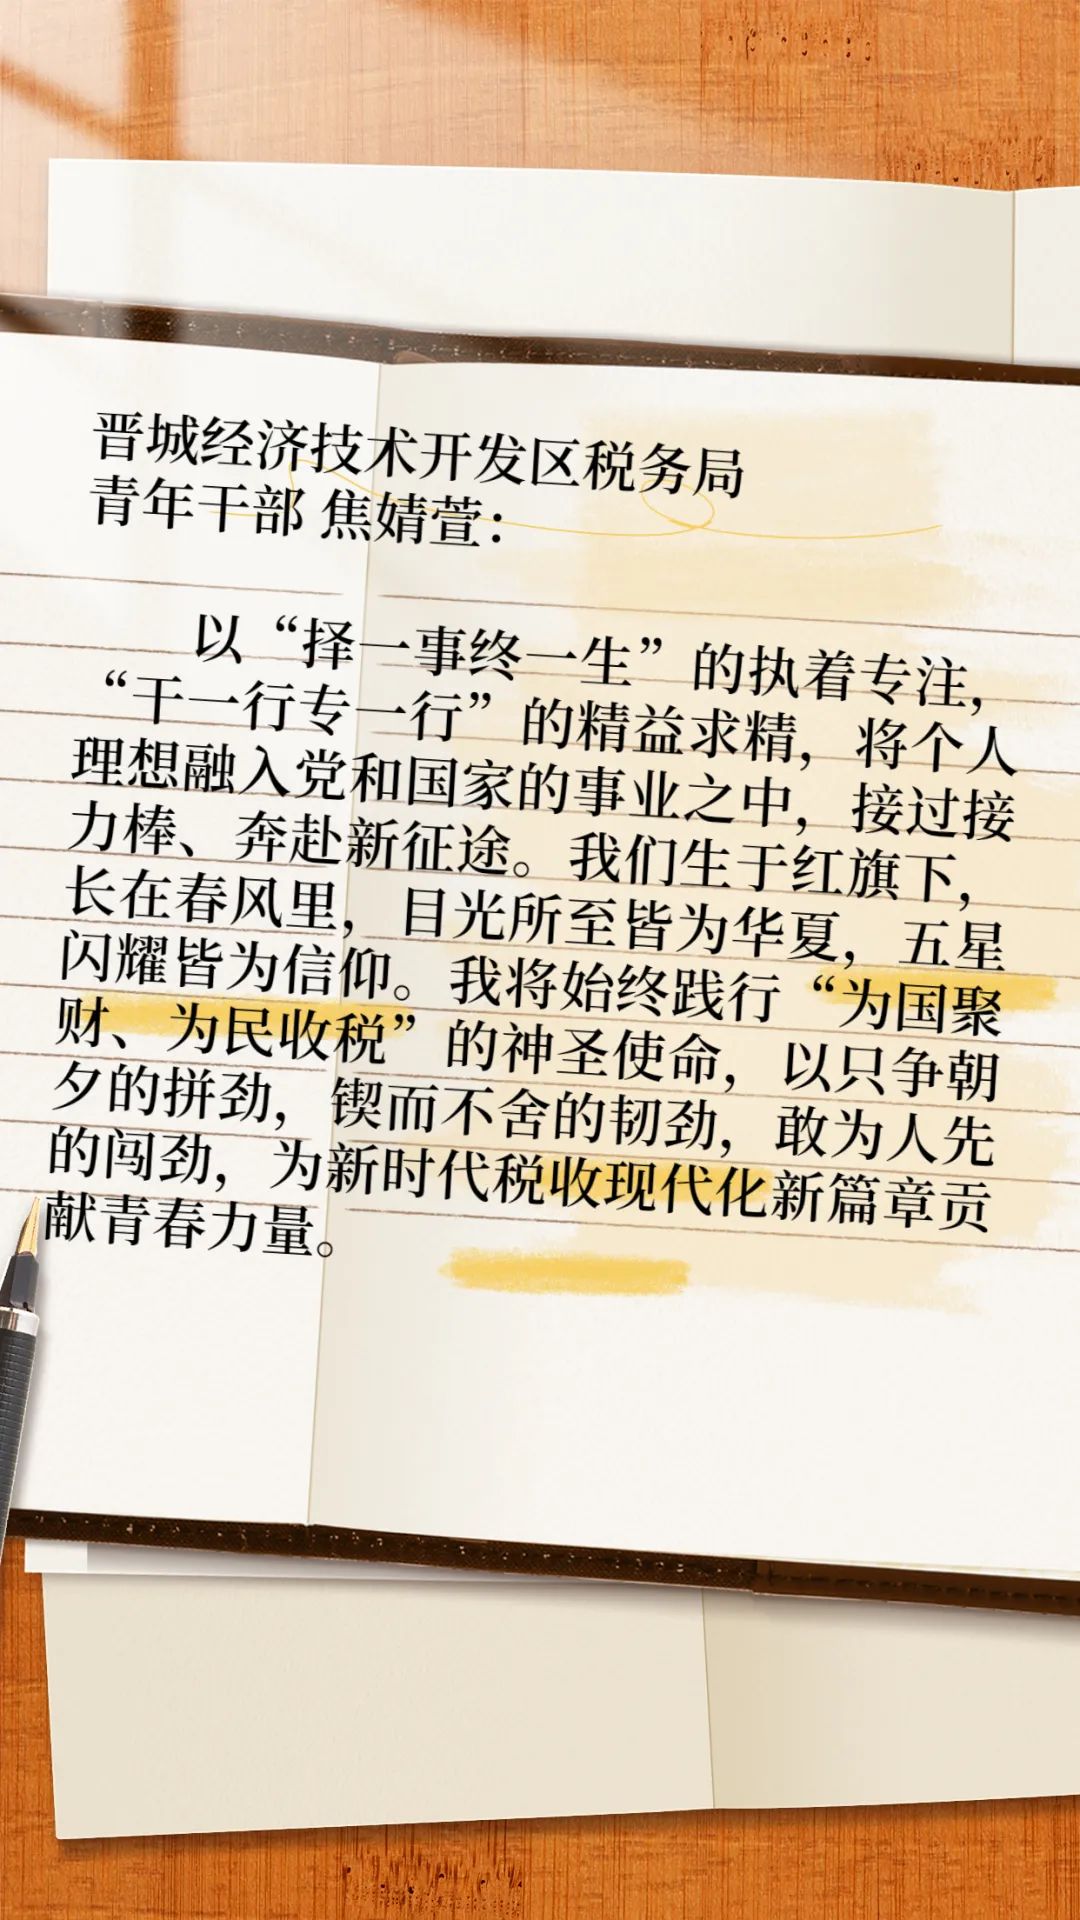 晋城经济技术开发区税务局
青年干部 焦婧萱：
以“择一事终一生”的执着专注，
“干一行专一行”的精益求精，将个人
理想融入党和国家的事业之中，接过接
力棒、奔赴新征途。我们生于红旗下，
长在春风里，目光所至皆为华夏，五星
闪耀皆为信仰。我将始终践行“为国聚
财、为民收税”的神圣使命，以只争朝
夕的拼劲，锲而不舍的韧劲，敢为人先
的闯劲，为新时代税收现代化新篇章贡
献青春力量。